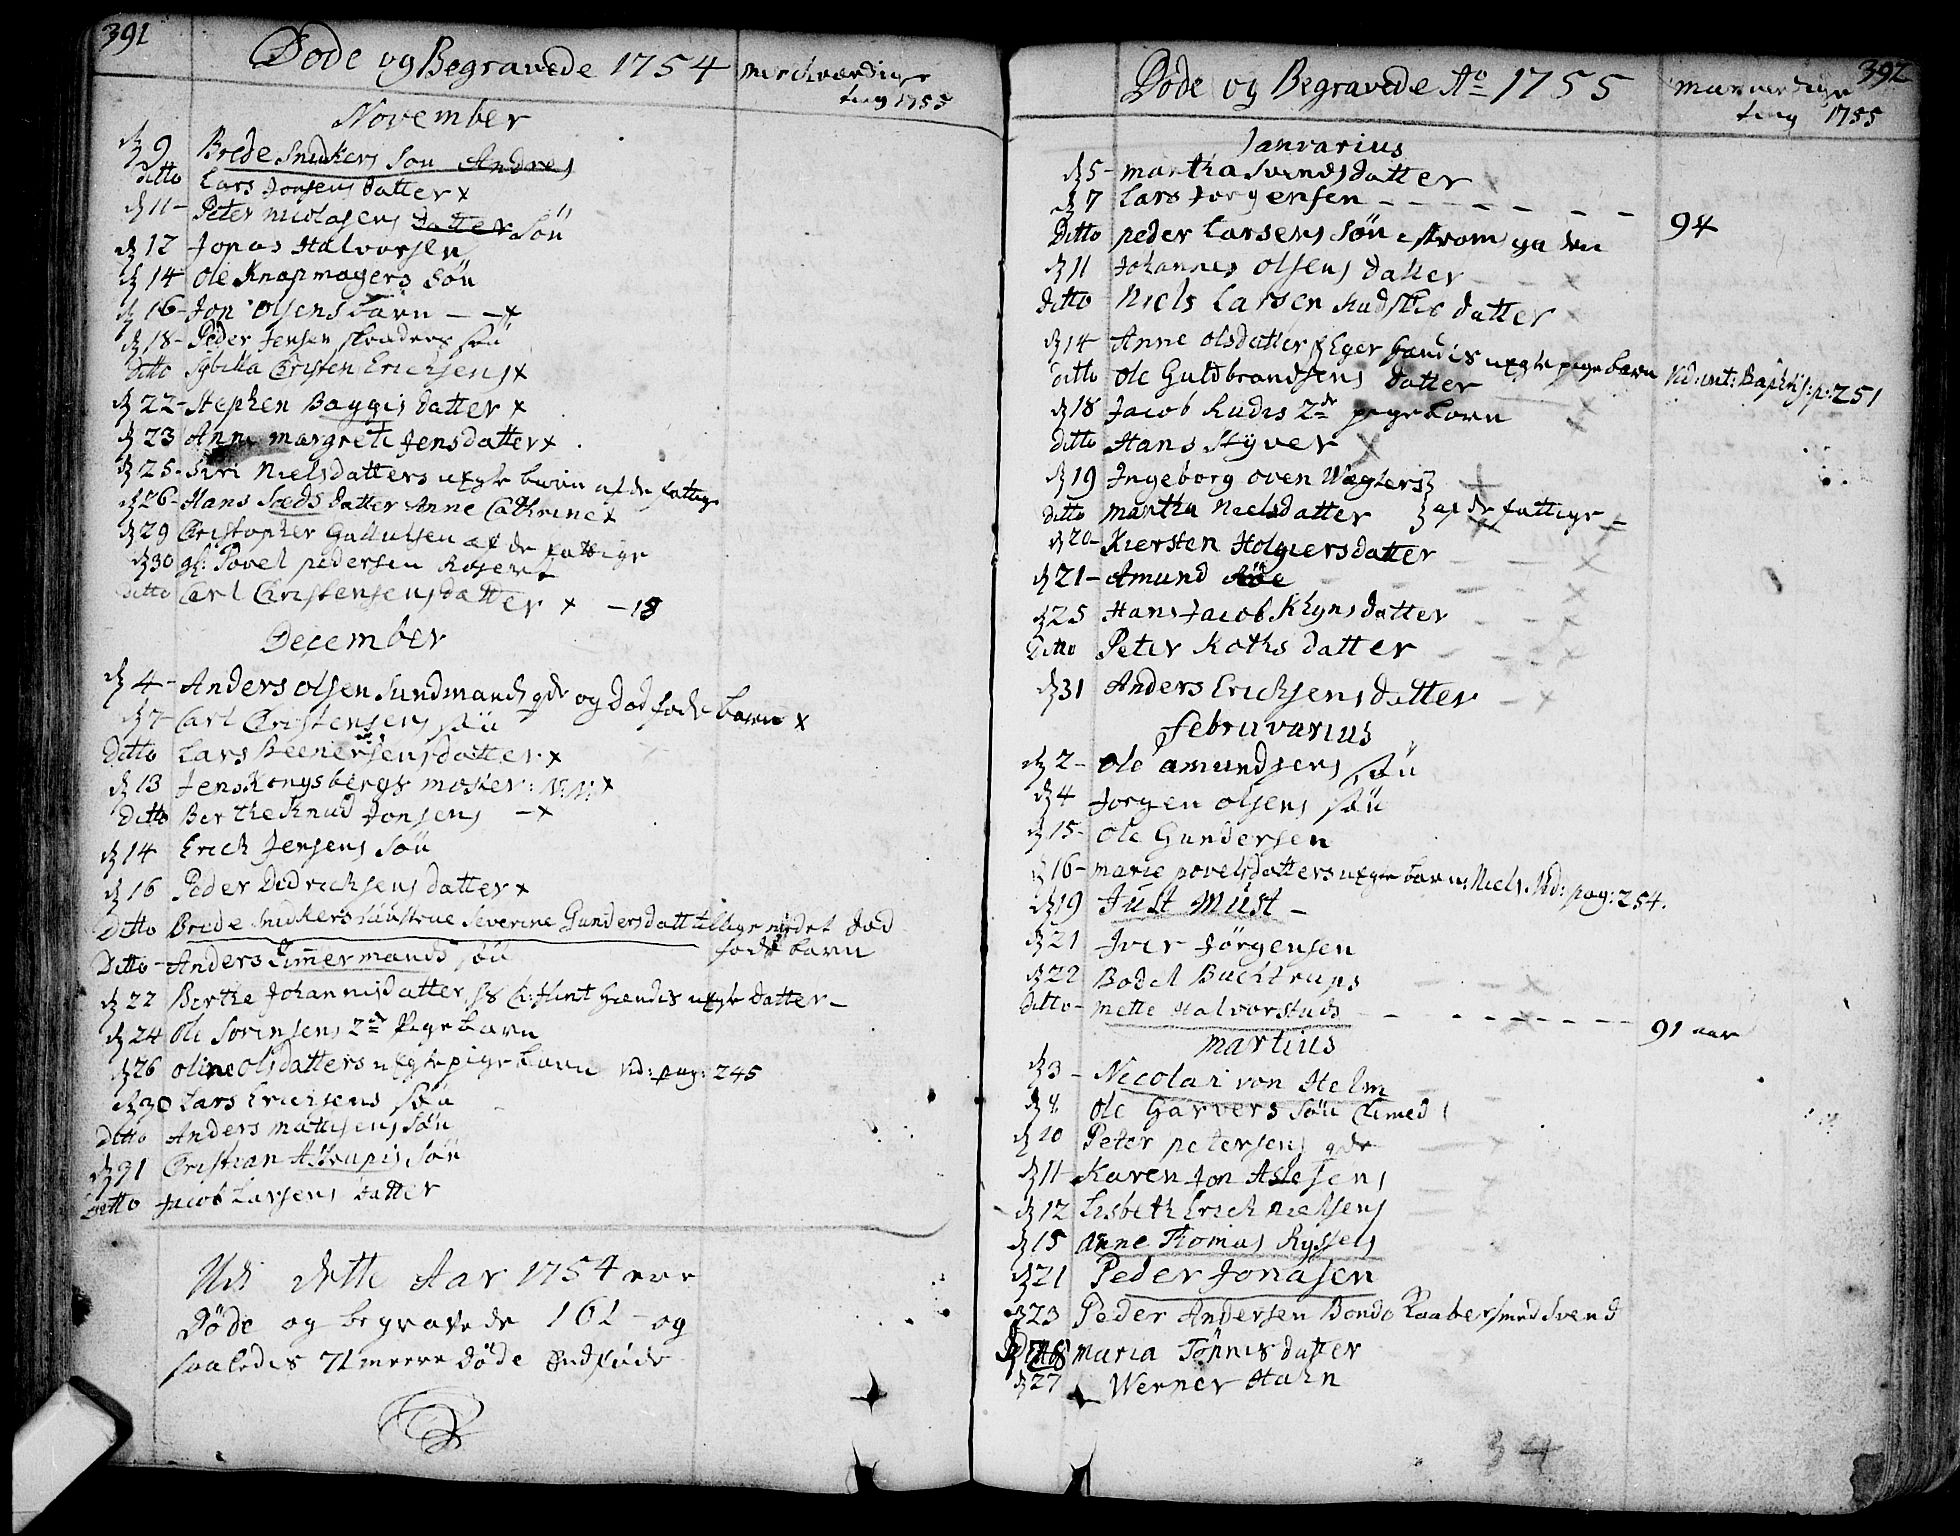 391
Døde og Begravede 1754
merckværdige
ting 1755
November
dẏ 9 Brede Snidkers Søn Andres
ditto Lars Jonsens datter x
dẏ 11 - Peter Nicolasens Datter Søn
dẏ 12 Jonas Halvorsen
dẏ 14 Ole Knapmagers Søn
dẏ 16 - Jon Olsens barn - - x
dẏ 18 - Peder Jensen Skræders søn
ditto Sybilla Christen Ericksens x
dẏ 22 - Stephen Baggis datter x
dẏ 23 Anne Margrete Jensdatter x
dẏ 25 - Siri Nielsdatters uegte barn af de fattige
dẏ 26 - Hans Sæds datter Anne Cathrine x
dẏ 29 Christopher Gadulsen af de fattige
dẏ 30 gl: Povel pedersen
ditto Carl Christensens datter x - 18
December
dẏ 4 - Anders Olsen Sundmands qde og død fødde barn x
dẏ 7 - Carl Christensens søn
Ditto Lars Beenersens datter x
dẏ 13 Jens Kongsbergs moster: N: N: x
Ditto Berthe Knud Jonsens - x
dẏ 14 Erick Jensens Søn
dẏ 16 Peder Didricksens datter x
Ditto Brede Snidkers hustrue Severine Gundersdatt tillige med et død
født barn
Ditto - Anders Timmermands søn
dẏ 22 Berthe Johannisdatter, Chr: Flint Hendis uegte datter -
dẏ 24 Ole Sørensens 2de Pigebarn
dẏ 26 Oline Olsdatters uegte pigebarn vid: pag: 245
dẏ 30 Lars Ericksens søn
Ditto Anders Mattisens søn
dẏ 31 Christian Astrupis Søn
Ditto Jacob Larsens datter
Udi dette Aar 1754 ere
Døde og begravede 161 - og
saaledis 71 meere døde End fødde
392
Døde og Begravede Ao 1755
mærværdige
ting 1755
Januarius
dẏ 5 - Martha Svendsdatter x
dẏ 7 Lars Jørgensen - - - - - - - 94
Ditto peder Larsens Søn i Strømsgaden
dẏ 11 Johannes Olsens datter - x
ditto Niels Larsen Rudskes datter x
dẏ 14 Anne Olsdatter Eger hendis uegte pigebarn vid: int: Baptis: p: 251
ditto Ole Guldbrandsens datter x
dẏ 18 Jacob Rudis 2de pigebarn x
ditto Hans Styver x
dẏ 19 Ingeborg oven Wegters
ditto Martha Nielsdatter } af de fattige -
dẏ 20 - Kiersten Holgiersdatter x
dẏ 21 - Amund Røe x
dẏ 25 Hans Jacob Klyns datter - - x
Ditto Peter Roths datter - - x
dẏ 31 Anders Ericksens datter - x
Februvarius
dẏ 2 - Ole Amundsens søn
dẏ 4 Jørgen Olsens søn
dẏ 15 - Ole Gundersen
dẏ 16 - Marie povelsdatters uegte barn: Niels. Vid: pag: 254.
dẏ 19 Just Must -
dẏ 21 Iver Jørgensen
dẏ 22 Bodel Buchtrups - - x
ditto - Mette Halvorstuds - - - - x - - - - 91 aar
Martius
dẏ 3 - Nicolai von Helm
dẏ 8 Ole Garvers søn
dẏ 10 Peter petersens qde - x
dẏ 11 - Karen Jon Aslesens - x
dẏ 12 Lisbeth Erick Nielsens - x
dẏ 15 Anne Thomas Ryssels
dẏ 21 Peder Jonasen
dẏ 23 Peder Andersen Bondo Kaabersmed Svend
Ditto Maria Tönnisdatter
dẏ 27 Werner Hahn
34